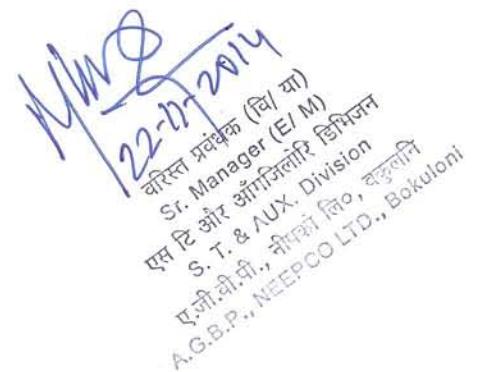 22-11-2014
वरिस्त प्रवंधक (वि/ या)
Sr. Manager (E/ M)
एस टि और ऑगजिलोरि डिभिजन
S. T. & AUX. Division
ए.जी.वी.पी., नीपको लि०, वकुलनि
A.G.B.P., NEEPCO LTD., Bokuloni